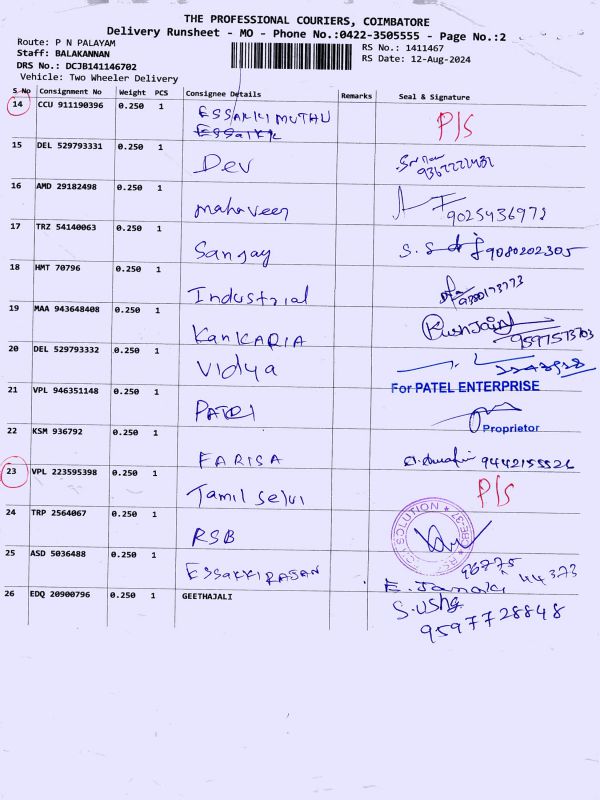 THE PROFESSIONAL COURIERS, COIMBATORE
Delivery Runsheet - MO - Phone No.:0422-3505555 - Page No.:2
Route: P N PALAYAM
Staff: BALAKANNAN
DRS No.: DCJB141146702
Vehicle: Two Wheeler Delivery
RS No.: 1411467
RS Date: 12-Aug-2024
S No Consignment No Weight PCS Consignee Details Remarks Seal & Signature
14 CCU 911190396 0.250 1 ESSAKKIMUTHU P/S
15 DEL 529793331 0.250 1 Dev
16 AMD 29182498 0.250 1 mahaveer 9025436972
17 TRZ 54140063 0.250 1 Sanjay 9080202305
18 HMT 70796 0.250 1 Industrial
19 MAA 943648408 0.250 1 KanKARIA 9597573703
20 DEL 529793332 0.250 1 Vidya
For PATEL ENTERPRISE
21 VPL 946351148 0.250 1 PATEL
Proprietor
22 KSM 936792 0.250 1 FARISA 9442155526
23 VPL 223595398 0.250 1 Tamil Selvi P/S
24 TRP 2564067 0.250 1 RSB
25 ASD 5036488 0.250 1 ESSAKKIRASAN E. Janaki 96775 44373
26 EDQ 20900796 0.250 1 GEETHAJALI S. Usha
9597728848